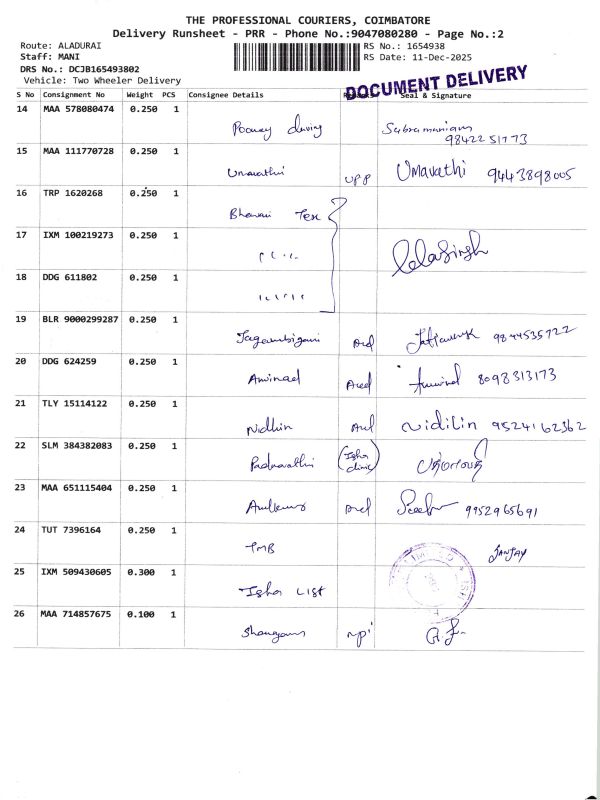 THE PROFESSIONAL COURIERS, COIMBATORE
Delivery Runsheet - PRR - Phone No.:9047080280 - Page No.:2
Route: ALADURAI
Staff: MANI
DRS No.: DCJB165493802
Vehicle: Two Wheeler Delivery
RS No.: 1654938
RS Date: 11-Dec-2025
DOCUMENT DELIVERY
S No Consignment No Weight PCS Consignee Details Seal & Signature
14 MAA 578080474 0.250 1 Subramaniam
9842251773
15 MAA 111770728 0.250 1 Umavathi UPP Umavathi 9443898005
16 TRP 1620268 0.250 1 Bhavani Tex
17 IXM 100219273 0.250 1
18 DDG 611802 0.250 1
19 BLR 9000299287 0.250 1 9844535722
20 DDG 624259 0.250 1 8098313173
21 TLY 15114122 0.250 1 Nidhin Nidilin 9524162362
22 SLM 384382083 0.250 1 Padmavathi (Isha clinic)
23 MAA 651115404 0.250 1 9952965691
24 TUT 7396164 0.250 1 TMB SANJAY
25 IXM 509430605 0.300 1 Isha List
26 MAA 714857675 0.100 1